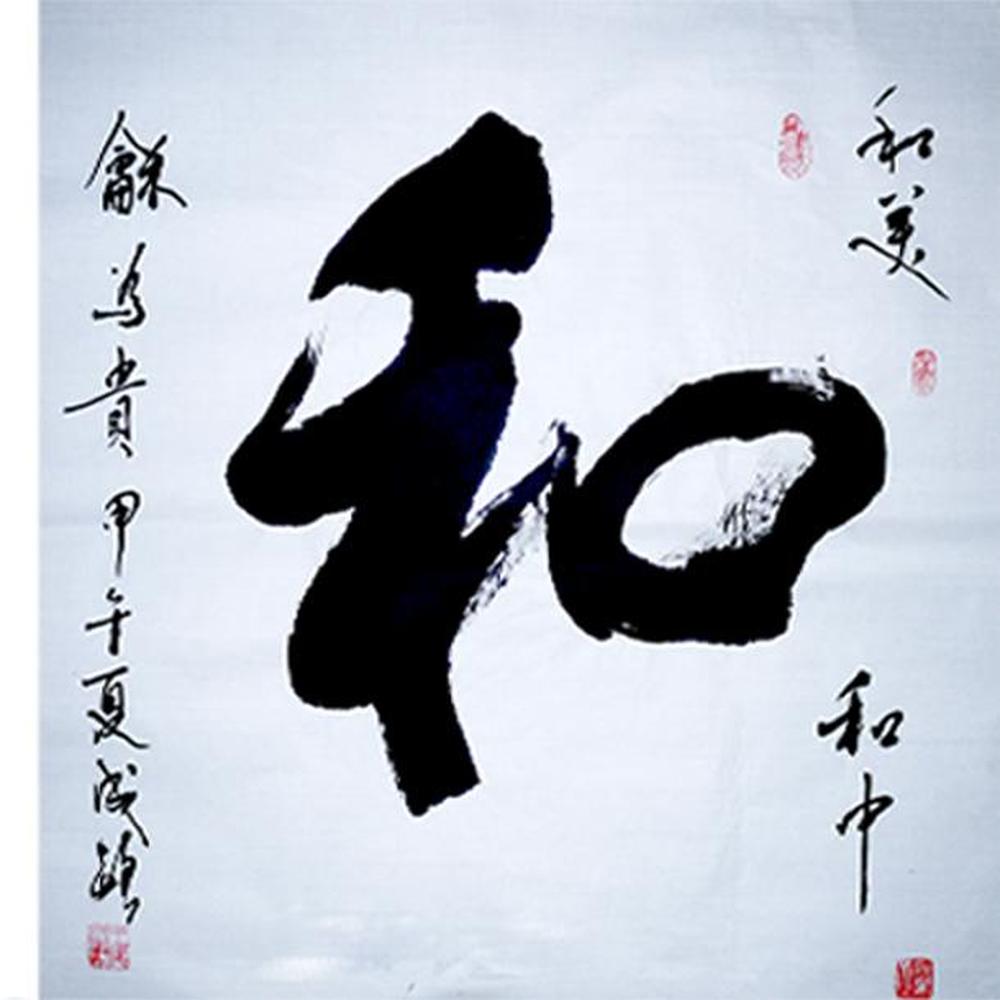 和美
和中
和
龢為貴甲午夏成